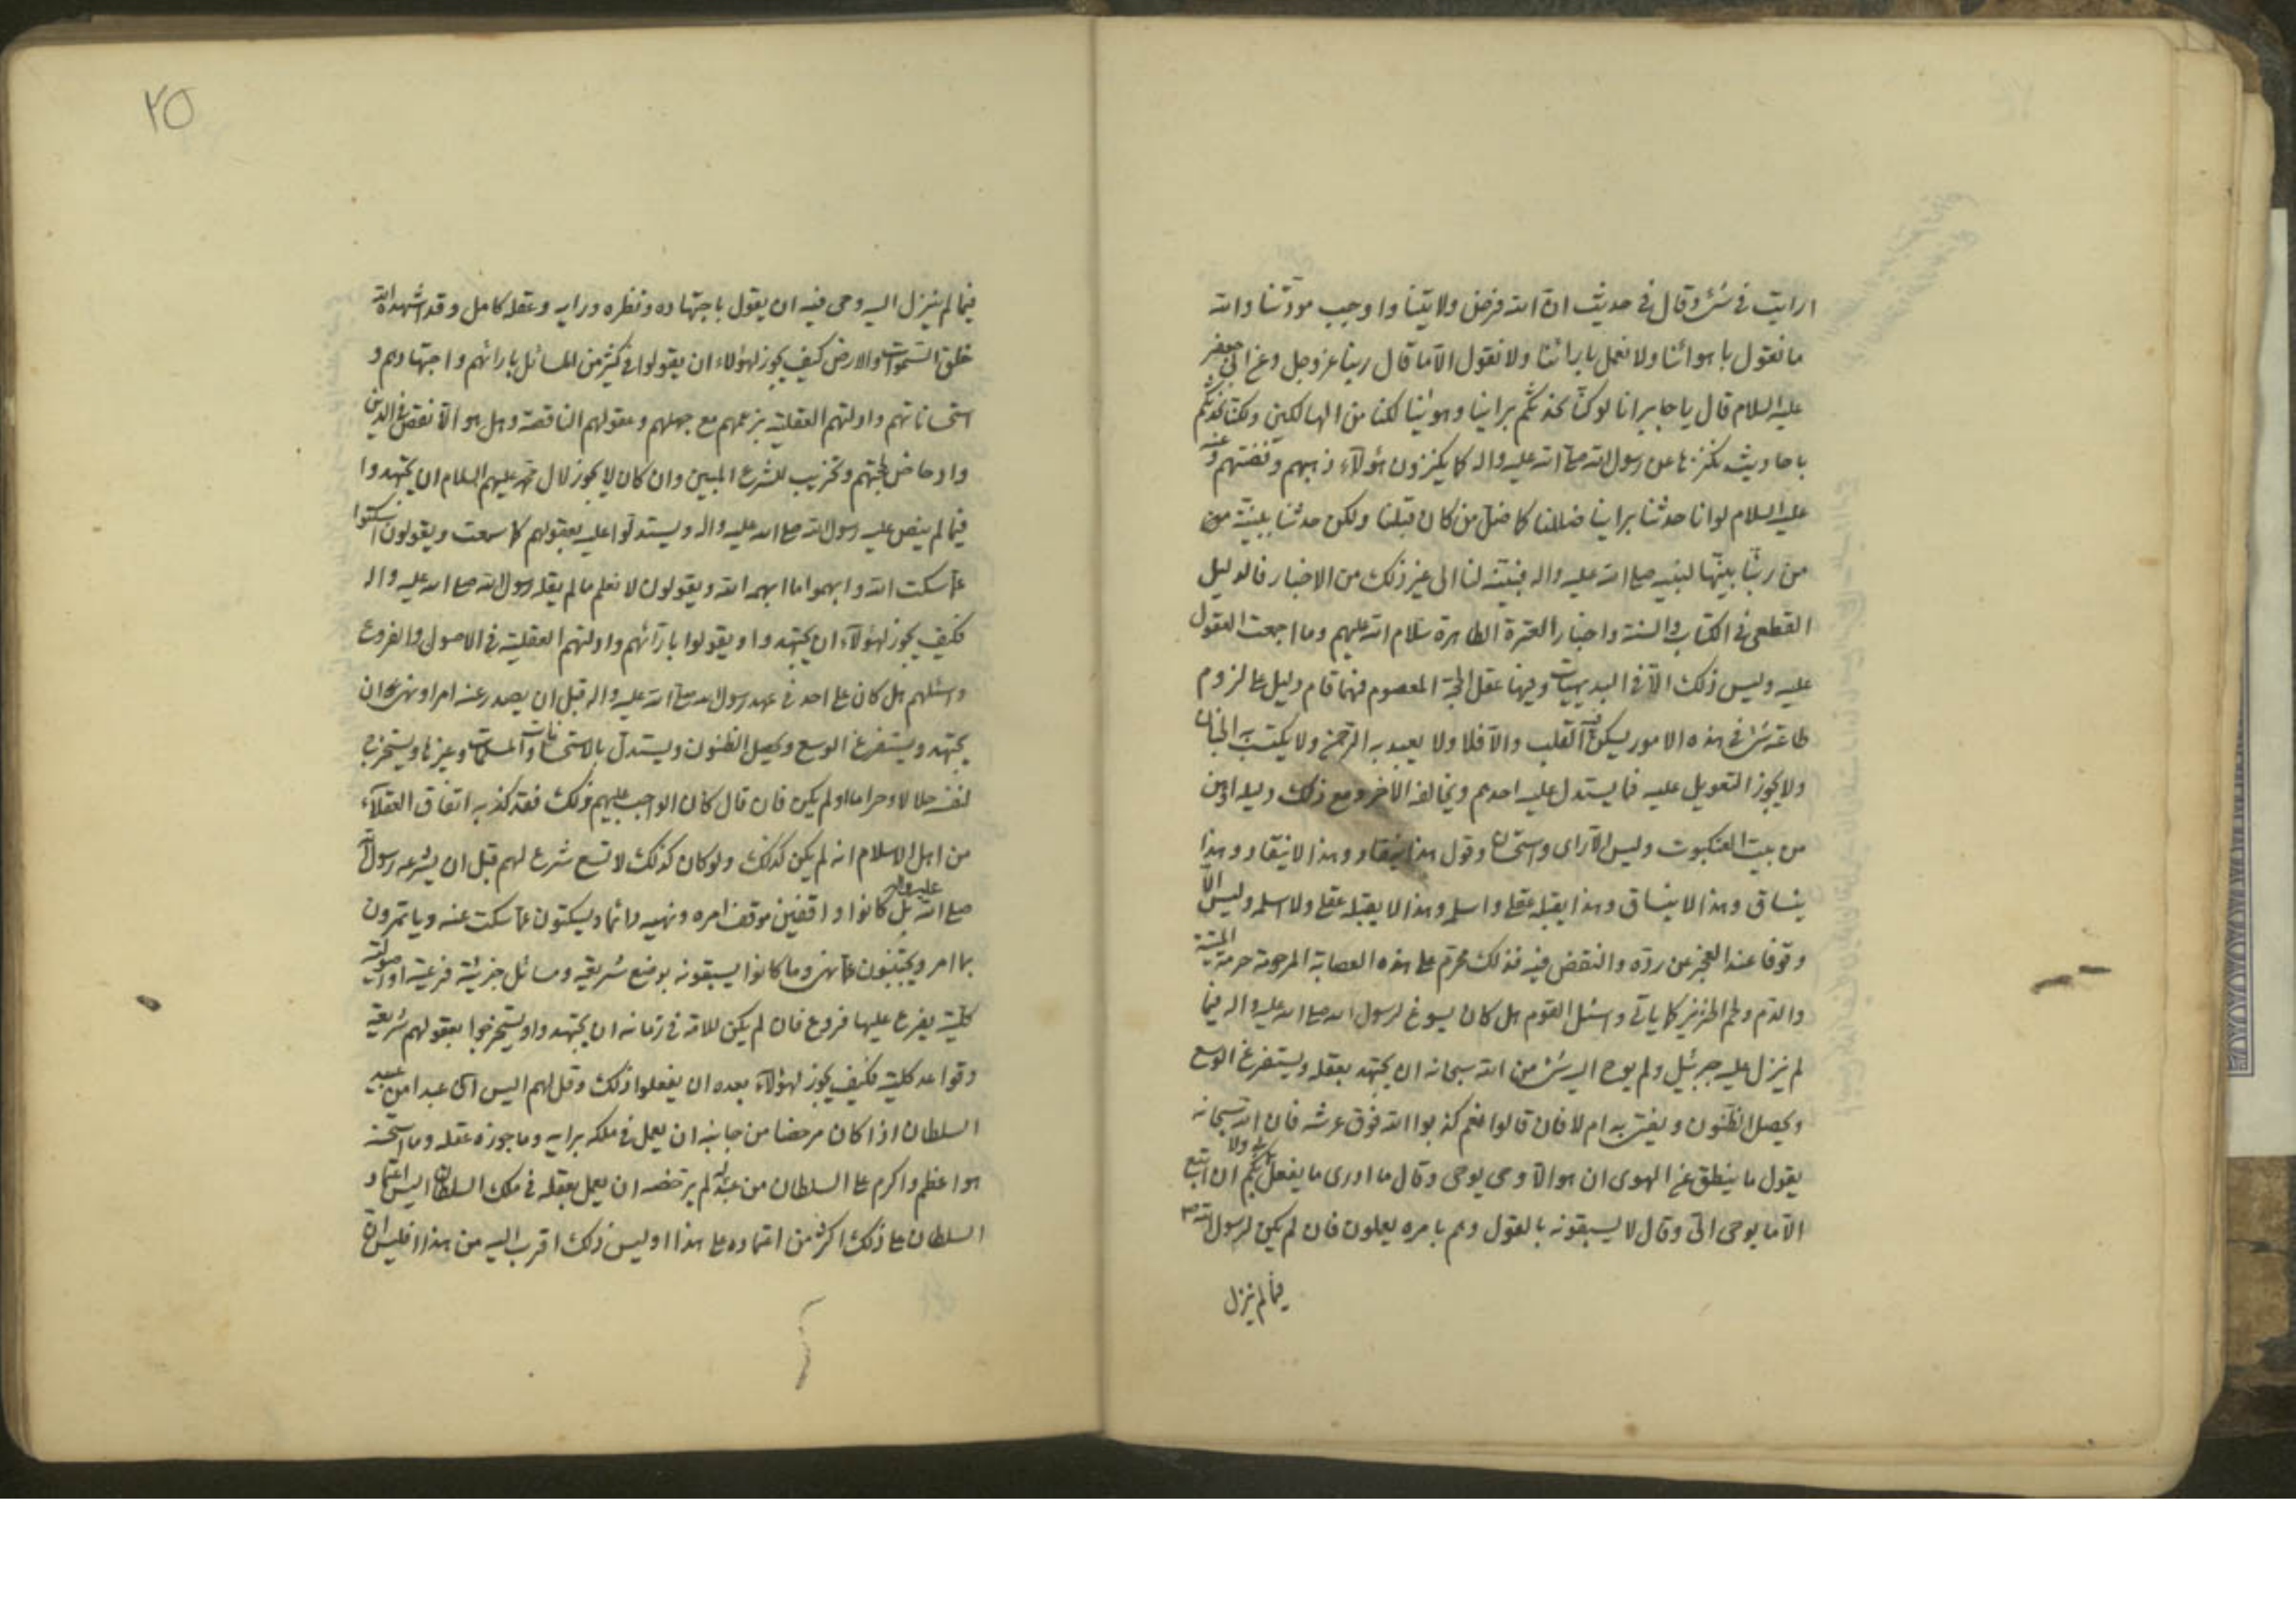 ارايت في شئ وقال في حديث ان الله فرض ولايتنا واوجب مودتنا والله
ما نقول باهوائنا ولا نعمل بارائنا ولا نقول الا ما قال ربنا عز وجل وعن ابي جعفر
عليه السلام قال يا جابر انا لو كنا نحدثكم براينا وهوانا لكنا من الهالكين ولكنا نحدثكم
باحاديث نكنزها عن رسول الله صلى الله عليه واله كما يكنزون هؤلاء ذهبهم وفضتهم وعنه
عليه السلام لو انا حدثنا براينا ضللنا كما ضل من كان قبلنا ولكن حدثنا ببينة من
من ربنا بينها لنبيه صلى الله عليه واله فبينه لنا الى غير ذلك من الاخبار فالدليل
القطعي في الكتاب والسنة واخبار العترة الطاهرة سلام الله عليهم وما اجمعت العقول
عليه وليس ذلك الا في البديهيات وفيها عقل الحجة المعصوم فمهما قام دليل على لزوم
طاعة شئ في هذه الامور يسكن القلب والا فلا ولا يعبد به الرحمن ولا يكتسب به الجنان
ولا يجوز التعويل عليه فما يستدل عليه احدهم ويخالفه الاخر ومع ذلك دليله اوهن
من بيت العنكبوت وليس الا راى واستحسان وقول هذا ينقاد وهذا لا ينقاد وهذا
ينساق وهذا لا ينساق وهذا يقبله عقلي واسلم وهذا لا يقبله عقلي ولا اسلم وليس الا
وقوفا عند العجز عن رده والنقض فيه فذلك محرم على هذه العصابة المرحومة حرمة الميتة
والدم ولحم الخنزير كما ياتي واسئل القوم هل كان يسوغ لرسول الله صلى الله عليه واله فيما
لم ينزل عليه جبرئيل ولم يوح اليه شئ من الله سبحانه ان يجتهد بعقله ويستفرغ الوسع
ويحصل الظنون ويفتى به ام لا فان قالوا نعم كذبوا الله فوق عرشه فان الله سبحانه
يقول ما ينطق عن الهوى ان هو الا وحى يوحى وقال ما ادرى ما يفعل بي ولا بكم ان اتبع
الا ما يوحى الى وقال لا يسبقونه بالقول وهم بامره يعملون فان لم يكن لرسول الله ص
فيما لم ينزل
٢٥
فيما لم ينزل اليه وحى فيه ان يقول باجتهاده ونظره ورايه وعقله كامل وقد اشهده الله
خلق السموات والارض كيف يجوز لهؤلاء ان يقولوا في كثير من المسائل بارائهم واجتهادهم و
استحساناتهم وادلتهم العقلية بزعمهم مع جهلهم وعقولهم الناقصة وهل هو الا نقض في الدين
وادحاض لحجتهم وتخريب للشرع المبين وان كان لا يجوز لال محمد عليهم السلام ان يجتهدوا
فيما لم ينص عليه رسول الله صلى الله عليه واله ويستدلوا عليه بعقولهم كما سمعت ويقولون اسكتوا
عما سكت الله وابهموا ما ابهمه الله ويقولون لا نعلم ما لم يقله رسول الله صلى الله عليه واله
فكيف يجوز لهؤلاء ان يجتهدوا ويقولوا بارائهم وادلتهم العقلية في الاصول والفروع
واسئلهم هل كان على احد في عهد رسول الله صلى الله عليه واله قبل ان يصدر عنه امر او نهى ان
يجتهد ويستفرغ الوسع ويحصل الظنون ويستدل بالاستحسانات والمسلمات وغيرها ويستخرج
لنفسه حلالا وحراما او لم يكن فان قال كان الواجب عليهم ذلك فقد كذبه اتفاق العقلاء
من اهل الاسلام انه لم يكن كذلك ولو كان كذلك لاتسع شرع لهم قبل ان يشرعه رسول الله
صلى الله عليه واله بل كانوا واقفين موقف امره ونهيه دائما ويسكتون عما سكت عنه وياتمرون
بما امر ويجتنبون عما نهى وما كانوا يسبقونه بوضع شريعة ومسائل جزئية فرعية او اصولية
كلية يفرع عليها فروع فان لم يكن للامة في زمانه ان يجتهدوا ويستخرجوا بعقولهم شريعة
وقواعد كلية فكيف يجوز لهؤلاء بعده ان يفعلوا ذلك وقل لهم اليس اى عبد امن عبيد
السلطان اذا كان مرخصا من جانبه ان يعمل في ملكه برايه وما جوزه عقله وما استحسنه
هو اعظم واكرم على السلطان من عبد لم يرخصه ان يعمل بعقله في ملك السلطان اليس اعتماد
السلطان على ذلك اكثر من اعتماده على هذا اوليس ذلك اقرب اليه من هذا افليس ان